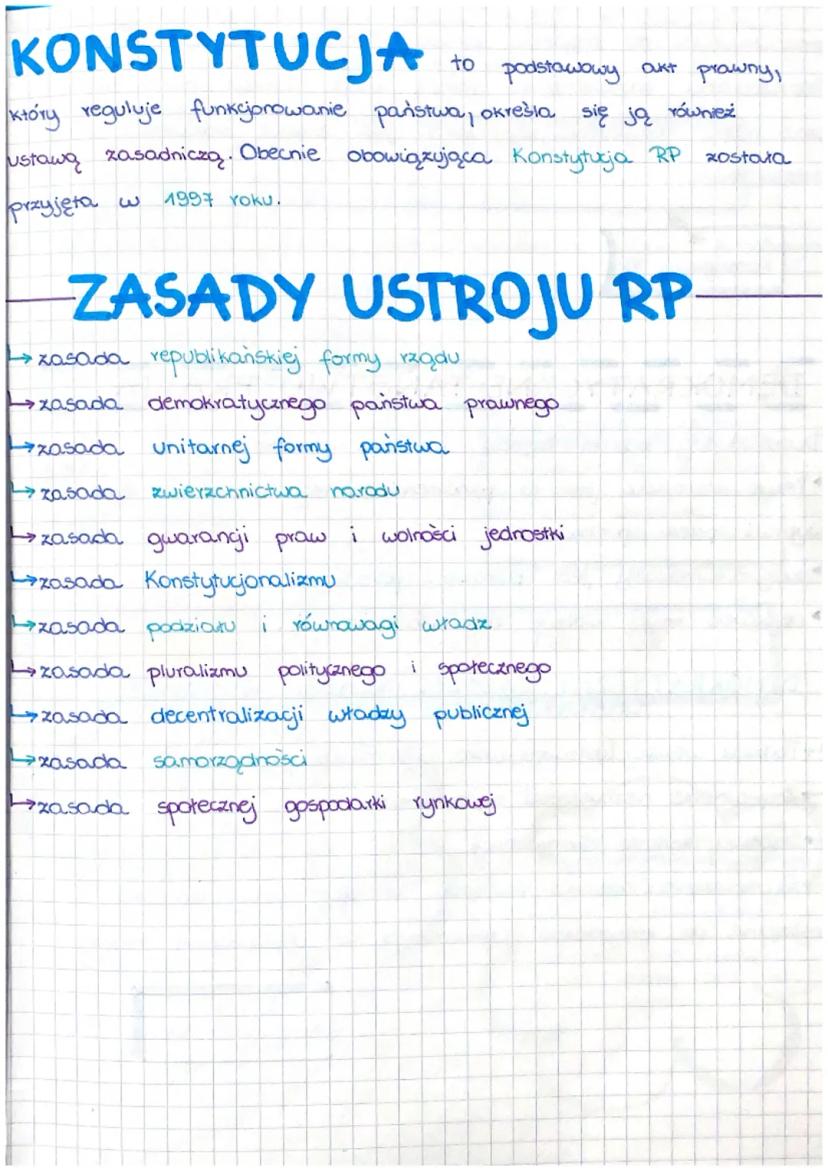 KONSTYTUCJA to podstawowy akt prawny,
który reguluje funkcjonowanie państwa, określa się ją również
ustawą zasadniczą. Obecnie obowiązująca Konstytucja RP została
przyjęta w 1997 roku.
ZASADY USTROJU RP
↳ zasada republikańskiej formy rządu
↳ zasada demokratycznego państwa prawnego
↳ zasada unitarnej formy państwa
↳ zasada zwierzchnictwa narodu
↳ zasada gwarancji praw i wolności jednostki
↳ zasada Konstytucjonalizmu
↳ zasada podziału i równowagi władz
↳ zasada pluralizmu politycznego i społecznego
↳ zasada decentralizacji władzy publicznej
↳ zasada samorządności
↳ zasada społecznej gospodarki rynkowej